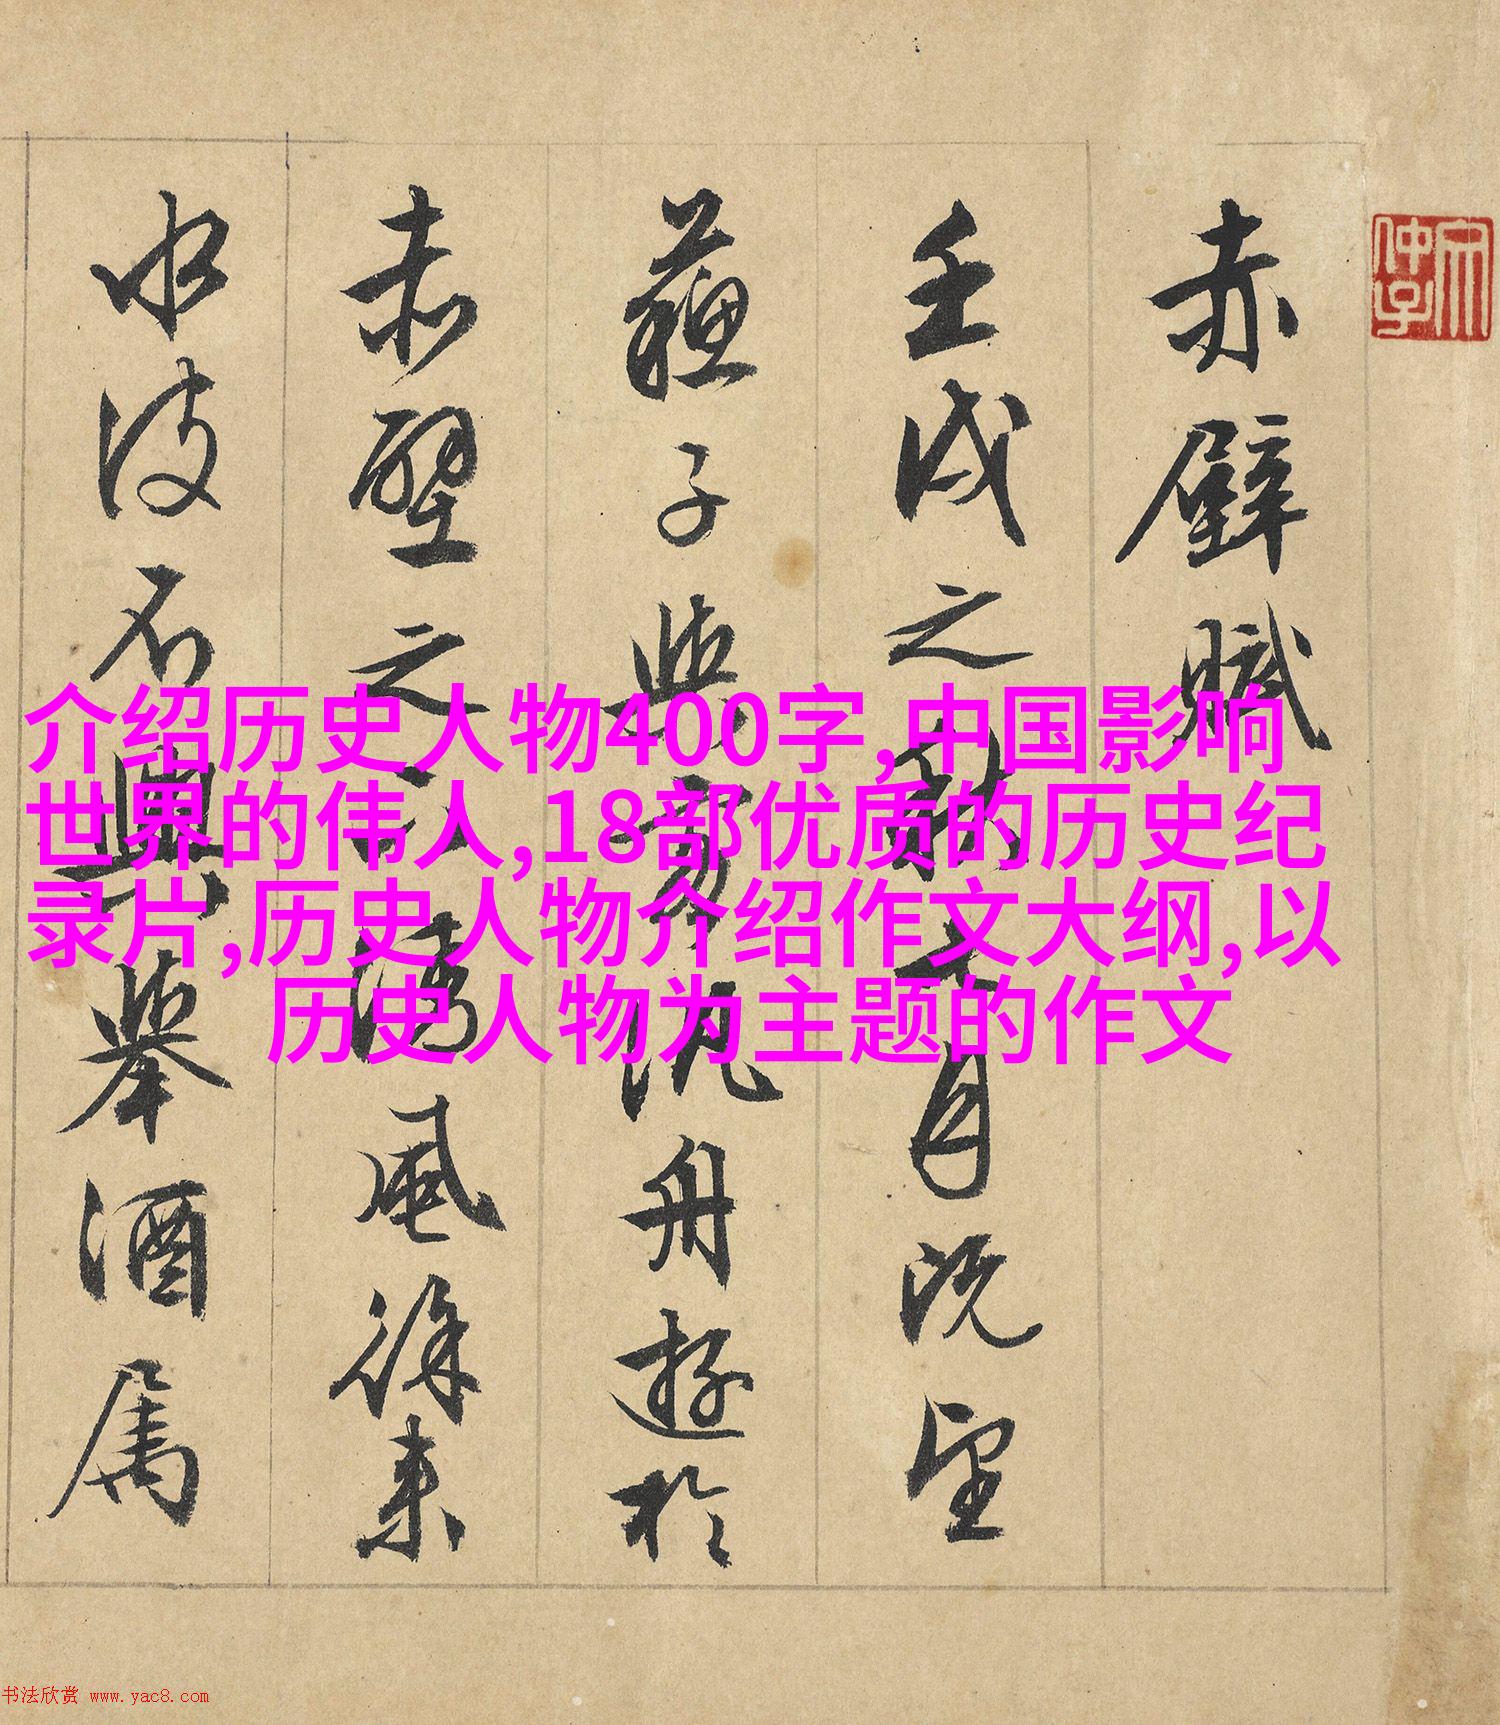 赤壁賦
壬戌之秋七月既望
蘇子與客汎舟遊於
赤壁之下清風徐来
水波不興舉酒属
介绍历史人物400字,中国影响
世界的伟人,18部优质的历史纪
录片,历史人物介绍作文大纲,以
历史人物为主题的作文
书法欣赏 www.yac8.com